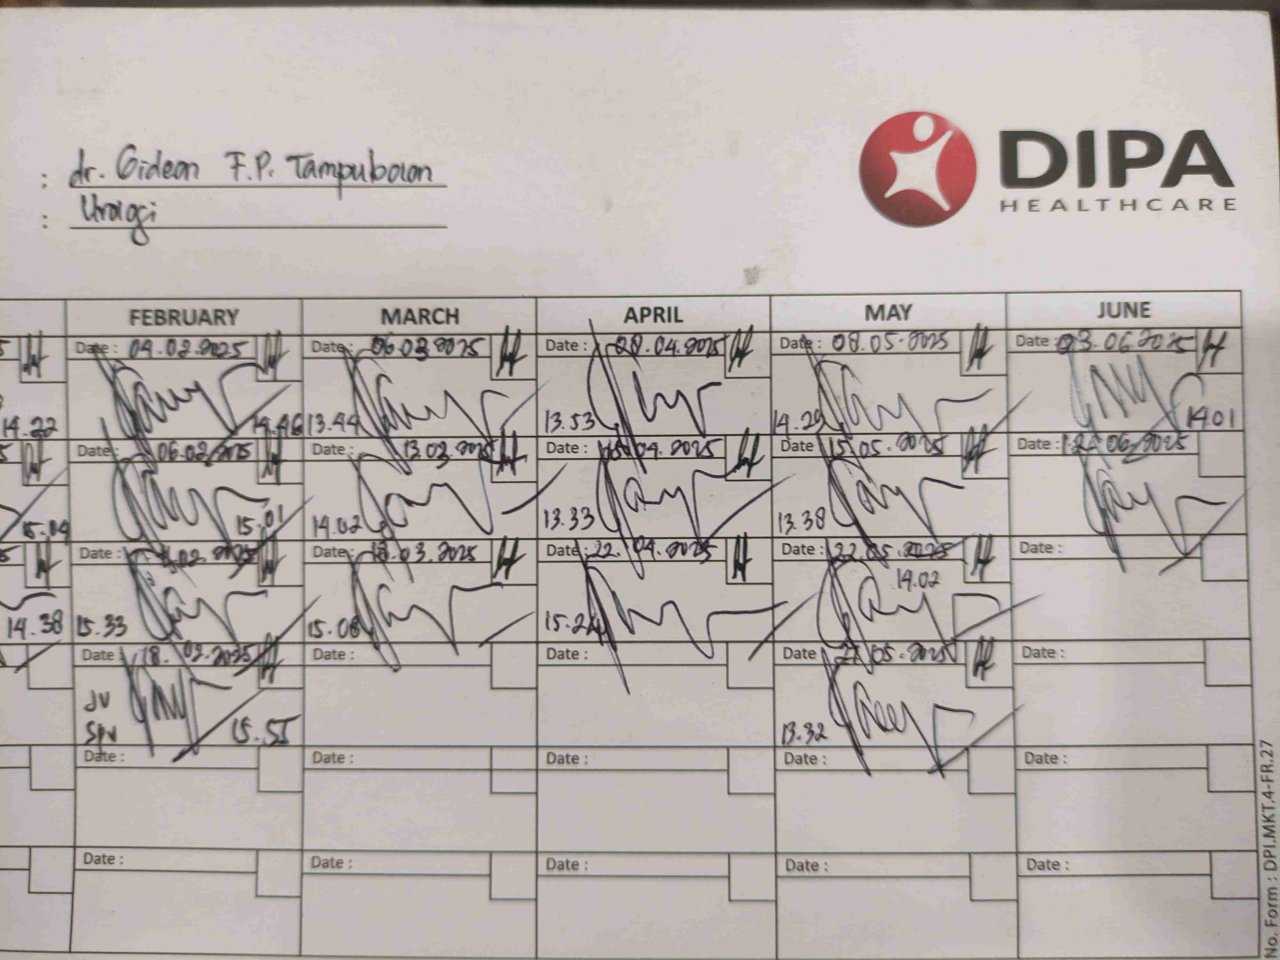 : dr. Gideon F.P. Tampubolon
: Urologi
DIPA
HEALTHCARE
FEBRUARY MARCH APRIL MAY JUNE
Date : 04.02.2025 Date : 06.03.2025 Date : 08.04.2025 Date : 08.05.2025 Date : 03.06.2025
14.22 14.46 13.44 13.53 14.29 14.01
Date : 06.02.2025 Date : 13.03.2025 Date : 04.2025 Date : 15.05.2025 Date : 12.06.2025
15.04 15.01 14.02 13.33 13.38
Date : 02.2025 Date : 18.03.2025 Date : 22.04.2025 Date : 22.05.2025 Date :
14.02
14.38 15.33 15.08 15.24
Date : 18.02.2025 Date : Date : Date : 27.05.2025 Date :
JV
Spv 15.55 13.32
Date : Date : Date : Date : Date :
Date : Date : Date : Date : Date :
No. Form : DPI.MKT.4-FR.27